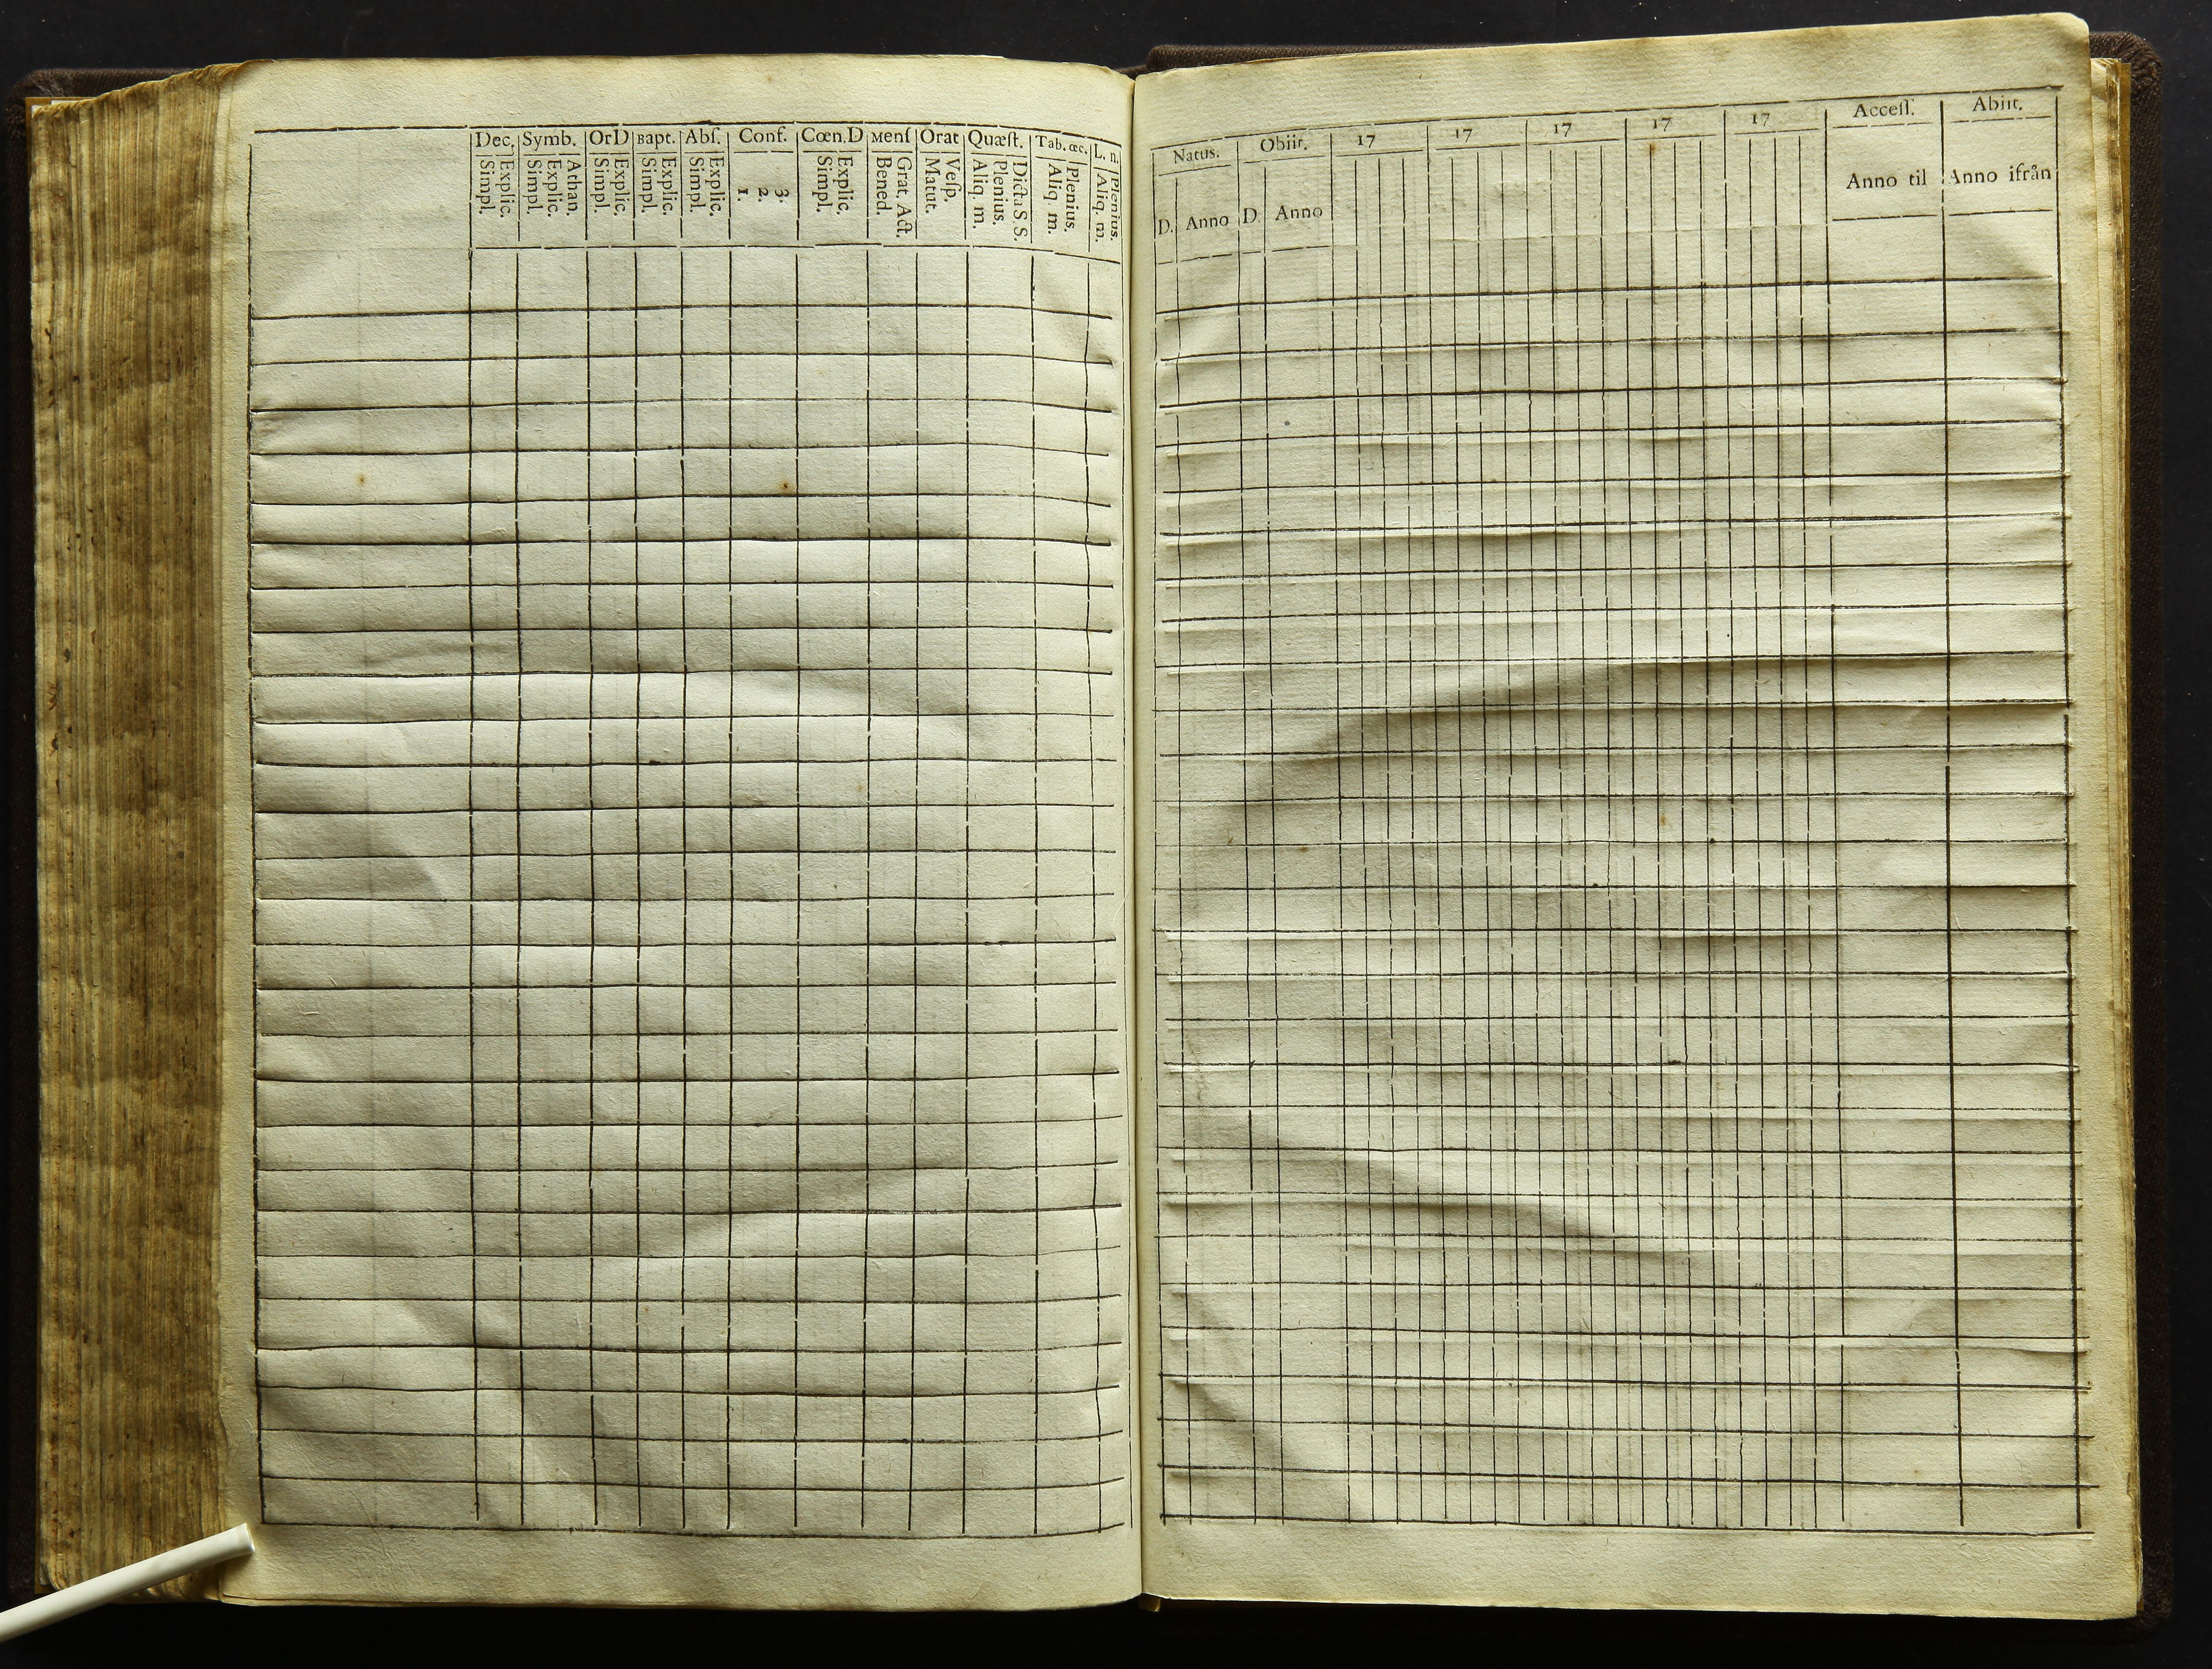 Dec, Symb. OrD Bapt. Abſ. Conf. Cœn.D Menſ Orat Quæſt. Tab. œc. L. n.
Simpl. Explic.
Simpl. Explic. Athan.
Simpl. Explic.
Simpl. Explic.
Simpl. Explic.
1. 2. 3.
Simpl. Explic.
Bened. Grat. Act.
Matut. Veſp.
Aliq. m. Plenius. Dicta S S.
Aliq. m. Plenius.
Aliq. m. Plenius.
Natus. Obiit. 17 17 17 17 17 Acceſſ. Abiit.
D. Anno D. Anno Anno til Anno ifrån